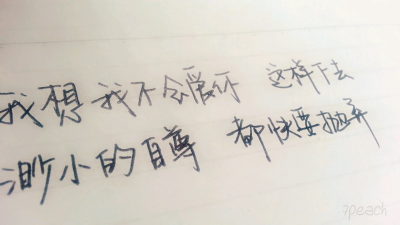 我想我不会爱你 这样下去
渺小的自尊 都快要抛弃
7peach